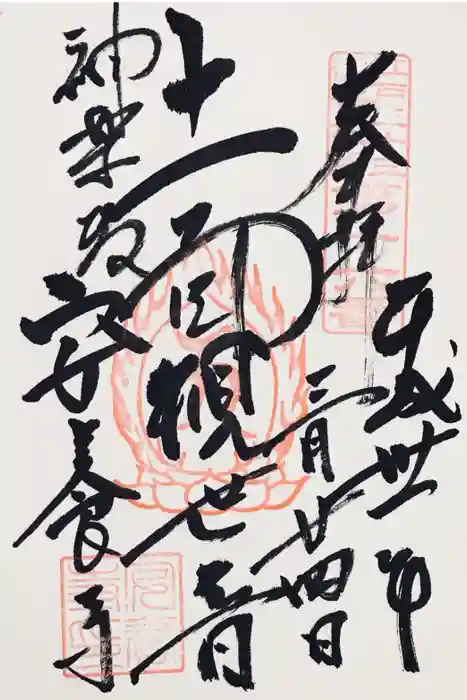 奉拝
平成丗一年
三月廿四日
十一面観世音
神楽坂
安養寺